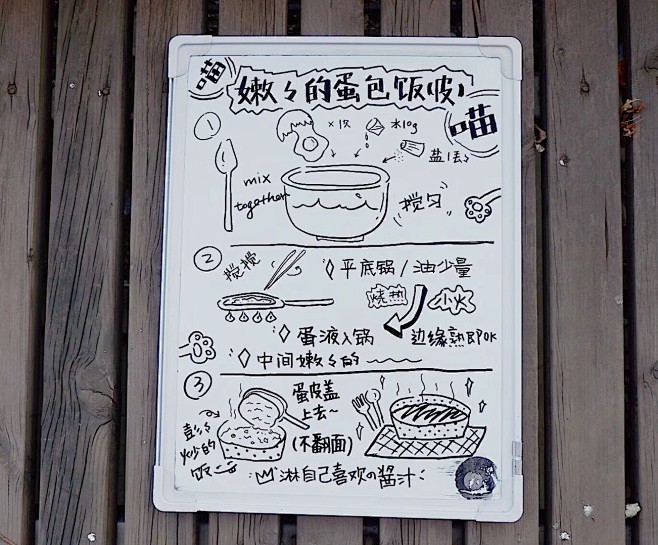 喵
嫩々的蛋包饭(皮)
喵
①
水10g
盐1丢丢
mix
together
搅匀
②
搅搅
平底锅/油少量
烧热
小火
蛋液入锅
边缘熟即OK
中间嫩々的
③
蛋皮盖
上去~
(不翻面)
炒的
饭
淋自己喜欢の酱汁